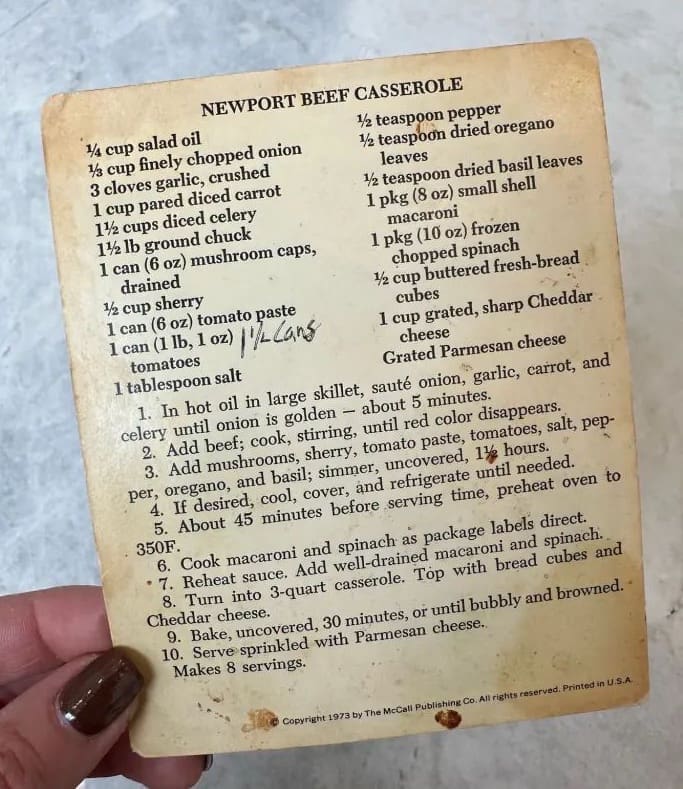 NEWPORT BEEF CASSEROLE
¼ cup salad oil
⅓ cup finely chopped onion
3 cloves garlic, crushed
1 cup pared diced carrot
1½ cups diced celery
1½ lb ground chuck
1 can (6 oz) mushroom caps,
drained
½ cup sherry
1 can (6 oz) tomato paste
1 can (1 lb, 1 oz) 1½ Cans
tomatoes
1 tablespoon salt
½ teaspoon pepper
½ teaspoon dried oregano
leaves
½ teaspoon dried basil leaves
1 pkg (8 oz) small shell
macaroni
1 pkg (10 oz) frozen
chopped spinach
½ cup buttered fresh-bread
cubes
1 cup grated, sharp Cheddar
cheese
Grated Parmesan cheese
1. In hot oil in large skillet, sauté onion, garlic, carrot, and
celery until onion is golden — about 5 minutes.
2. Add beef; cook, stirring, until red color disappears.
3. Add mushrooms, sherry, tomato paste, tomatoes, salt, pep-
per, oregano, and basil; simmer, uncovered, 1½ hours.
4. If desired, cool, cover, and refrigerate until needed.
5. About 45 minutes before serving time, preheat oven to
350F.
6. Cook macaroni and spinach as package labels direct.
7. Reheat sauce. Add well-drained macaroni and spinach.
8. Turn into 3-quart casserole. Top with bread cubes and
Cheddar cheese.
9. Bake, uncovered, 30 minutes, or until bubbly and browned.
10. Serve sprinkled with Parmesan cheese.
Makes 8 servings.
© Copyright 1973 by The McCall Publishing Co. All rights reserved. Printed in U.S.A.